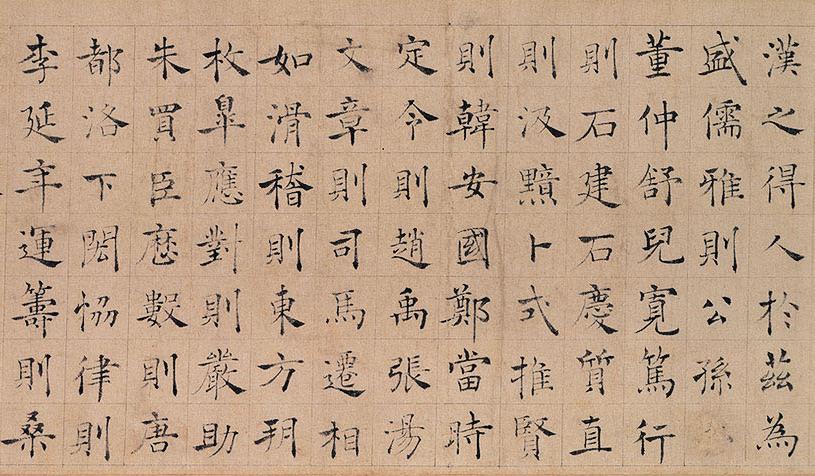 漢之得人於茲為
盛儒雅則公孫
董仲舒兒寬篤行
則石建石慶質直
則汲黯卜式推賢
則韓安國鄭當時
定令則趙禹張湯
文章則司馬遷相
如滑稽則東方朔
枚皐應對則嚴助
朱買臣曆數則唐
都洛下閎恊律則
李延年運籌則桑